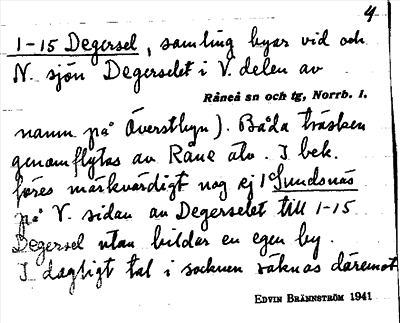 4
1-15 Degersel, samling byar vid och
N. sjön Degerselet i V. delen av
Råneå sn och tg, Norrb. l.
namn på Överstbyn). Båda träsken
genomflytas av Råne älv. I bek.
föres märkvärdigt nog ej 1 Sundsnäs
på V. sidan av Degerselet till 1-15
Degersel utan bildar en egen by.
I dagligt tal i socknen räknas däremot
EDVIN BRÄNNSTRÖM 1941